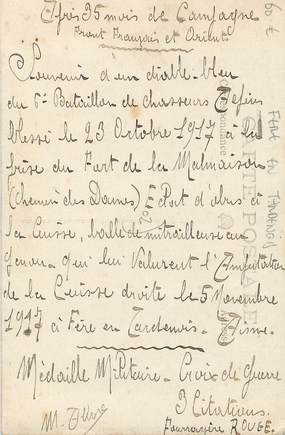 Après 35 mois de Campagne
Front Français et Orient
Souvenir d'un diable-bleu
du 6e Bataillon de chasseurs Alpins
blessé le 23 Octobre 1917 à la
prise du Fort de la Malmaison
(Chemin des Dames) Eclat d'obus à
la Cuisse, balle de mitrailleuse au
Genou - qui lui Valurent l'Amputation
de la Cuisse droite le 5 Novembre
1917 à Fère en Tardenois - Aisne.
Médaille Militaire - Croix de Guerre
3 Citations.
Fourragère ROUGE.
M.
60 €
FERE EN TARDENOIS
CARTE POSTALE
Correspondance